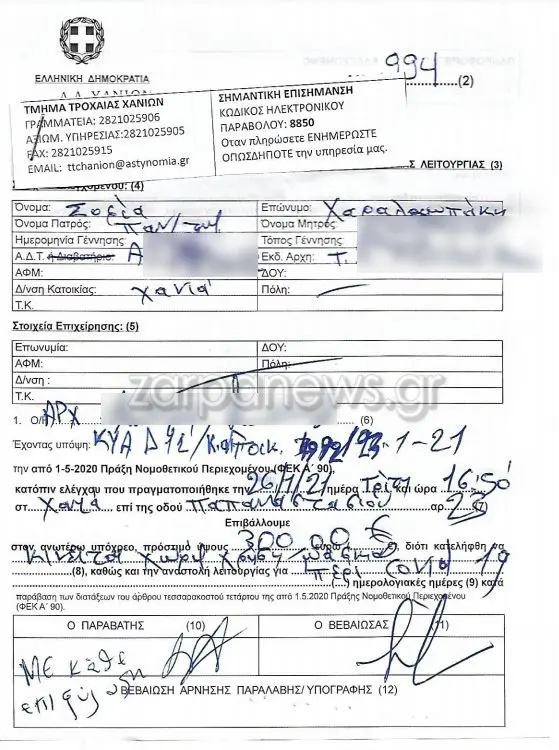 994
ΕΛΛΗΝΙΚΗ ΔΗΜΟΚΡΑΤΙΑ
(2)
Δ.Δ. ΧΑΝΙΩΝ
ΤΜΗΜΑ ΤΡΟΧΑΙΑΣ ΧΑΝΙΩΝ
ΓΡΑΜΜΑΤΕΙΑ: 2821025906
ΑΞΙΩΜ. ΥΠΗΡΕΣΙΑΣ:2821025905
FAX: 2821025915
EMAIL: ttchanion@astynomia.gr
ΣΗΜΑΝΤΙΚΗ ΕΠΙΣΗΜΑΝΣΗ
ΚΩΔΙΚΟΣ ΗΛΕΚΤΡΟΝΙΚΟΥ
ΠΑΡΑΒΟΛΟΥ: 8850
Οταν πληρώσετε ΕΝΗΜΕΡΩΣΤΕ
ΟΠΩΣΔΗΠΟΤΕ την υπηρεσία μας.
Σ ΛΕΙΤΟΥΡΓΙΑΣ (3)
(4)
Όνομα: Σοφία Επώνυμο: Χαραλαμπάκη
Όνομα Πατρός: Παν/της Όνομα Μητρός:
Ημερομηνία Γέννησης: Τόπος Γέννησης:
Α.Δ.Τ. ή Διαβατήριο: Α Εκδ. Αρχη: Τ.
ΑΦΜ: ΔΟΥ:
Δ/νση Κατοικίας: Χανιά Πόλη:
Τ.Κ.
Στοιχεία Επιχείρησης: (5)
Επωνυμία: ΔΟΥ:
ΑΦΜ: Πόλη:
Δ/νση :
Τ.Κ.
zarpanews.gr
1. Ο/Η ΑΡΧ (6)
Έχοντας υπόψη: ΚΥΑ 1-21
την από 1-5-2020 Πράξη Νομοθετικού Περιεχομένου (ΦΕΚ Α΄ 90),
κατόπιν ελέγχου που πραγματοποιήθηκε την 26/1/21 ημέρα Τρίτη και ώρα 16:50
στ Χανιά επί της οδού Παπαναστασίου αρ. (7)
Επιβάλλουμε
στον ανωτέρω υπόχρεο, πρόστιμο ύψους 300,00 € ευρώ, διότι κατελήφθη να
κινείται χωρίς χρήση μάσκας
(8), καθώς και την αναστολή λειτουργίας για περί covid 19
(...) ημερολογιακές ημέρες (9) κατά
παράβαση των διατάξεων του άρθρου τεσσαρακοστού τετάρτου της από 1.5.2020 Πράξης Νομοθετικού Περιεχομένου
(ΦΕΚ Α΄ 90).
Ο ΠΑΡΑΒΑΤΗΣ (10) Ο ΒΕΒΑΙΩΣΑΣ (11)
ΜΕ κάθε
επιφύλαξη
ΒΕΒΑΙΩΣΗ ΑΡΝΗΣΗΣ ΠΑΡΑΛΑΒΗΣ/ ΥΠΟΓΡΑΦΗΣ (12)